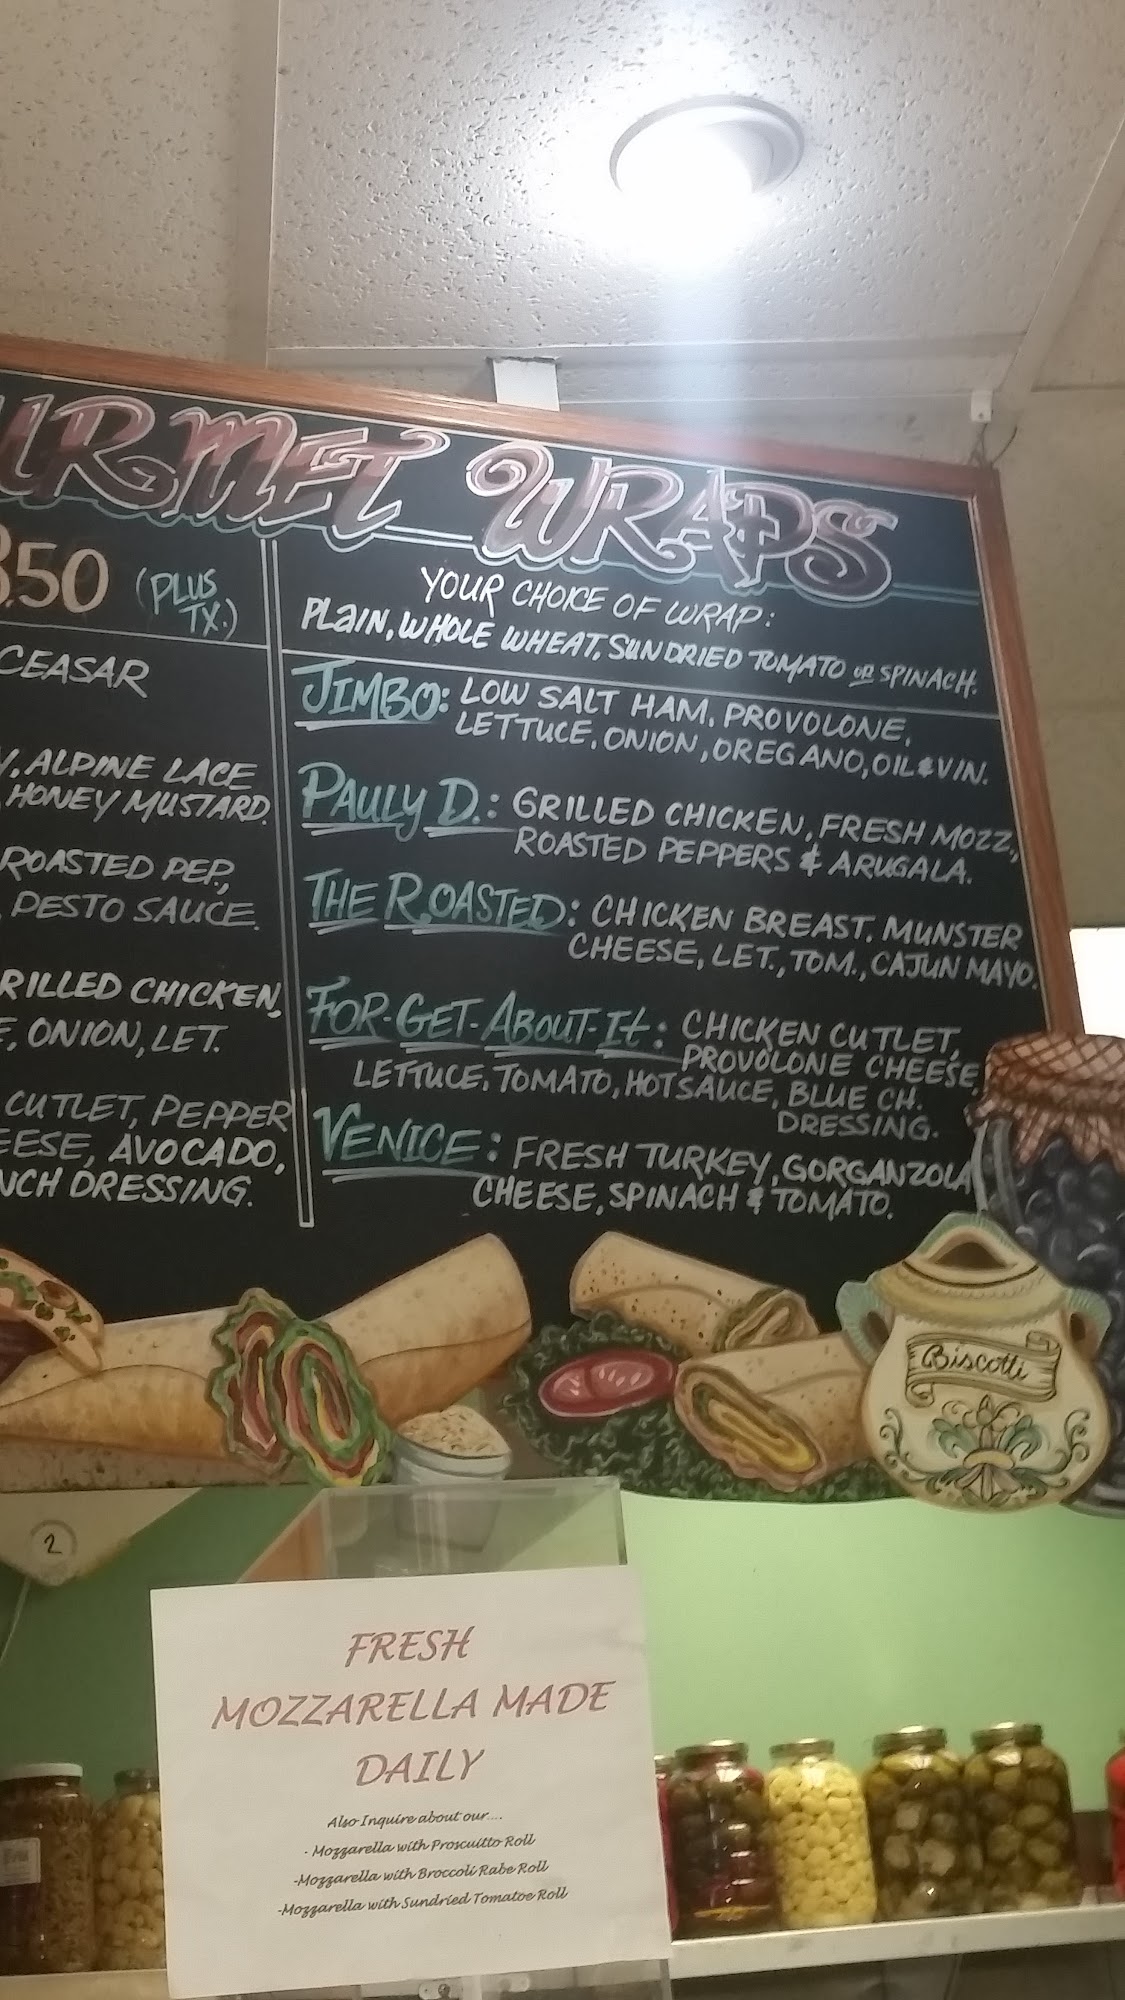 GOURMET WRAPS
8.50 (PLUS
TX.)
CEASAR
ALPINE LACE
HONEY MUSTARD.
ROASTED PEP.,
PESTO SAUCE.
GRILLED CHICKEN,
ONION, LET.
CUTLET, PEPPER
AVOCADO,
DRESSING.
YOUR CHOICE OF WRAP:
PLAIN, WHOLE WHEAT, SUNDRIED TOMATO OR SPINACH.
JIMBO: LOW SALT HAM, PROVOLONE,
LETTUCE, ONION, OREGANO, OIL & VIN.
PAULY D.: GRILLED CHICKEN, FRESH MOZZ.,
ROASTED PEPPERS & ARUGALA.
THE ROASTED: CHICKEN BREAST, MUNSTER
CHEESE, LET., TOM., CAJUN MAYO.
FOR-GET-ABOUT-It: CHICKEN CUTLET,
PROVOLONE CHEESE,
LETTUCE, TOMATO, HOT SAUCE, BLUE CH.
DRESSING.
VENICE: FRESH TURKEY, GORGANZOLA
CHEESE, SPINACH & TOMATO.
Biscotti
2
FRESH
MOZZARELLA MADE
DAILY
Also Inquire about our....
- Mozzarella with Proscuitto Roll
-Mozzarella with Broccoli Rabe Roll
-Mozzarella with Sundried Tomatoe Roll